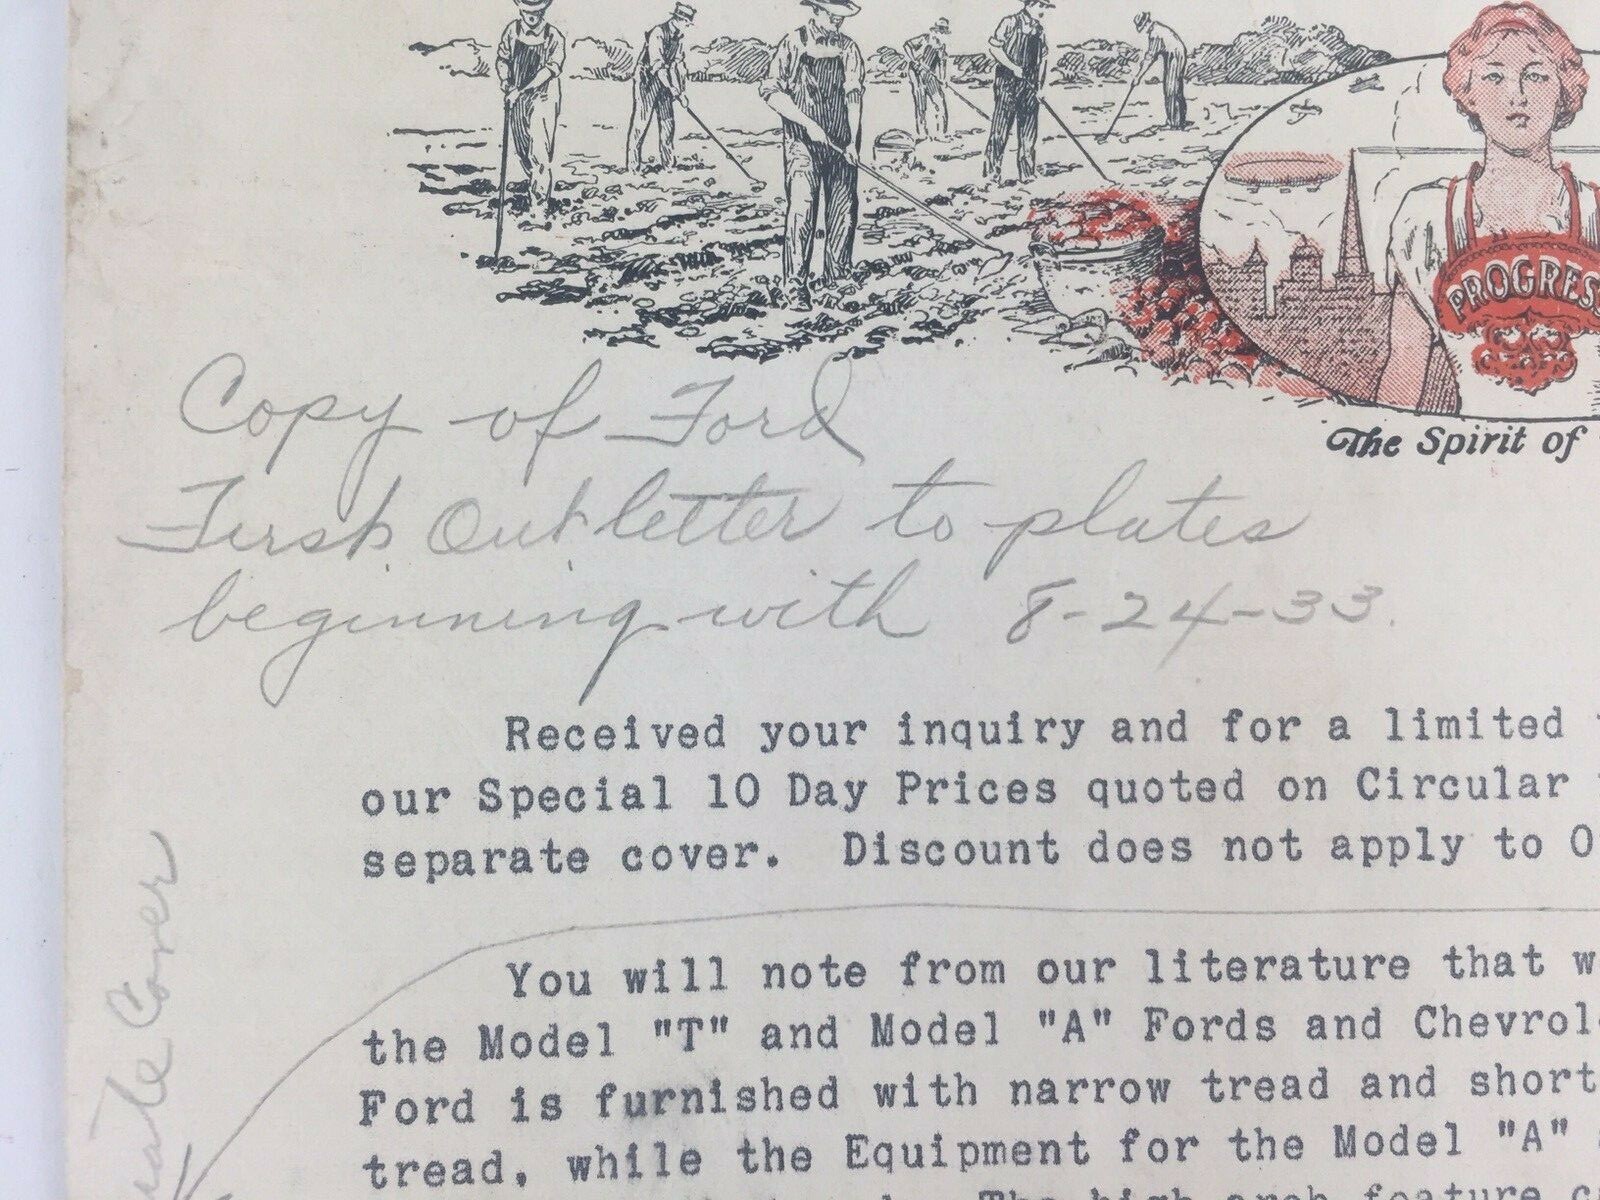 PROGRES
The Spirit of
Copy of Ford
First Out letter to plates
beginning with 8-24-33.
Received your inquiry and for a limited
our Special 10 Day Prices quoted on Circular
separate cover. Discount does not apply to O
You will note from our literature that w
the Model "T" and Model "A" Fords and Chevrol
Ford is furnished with narrow tread and short
tread, while the Equipment for the Model "A"
The high arch feature c
Cover